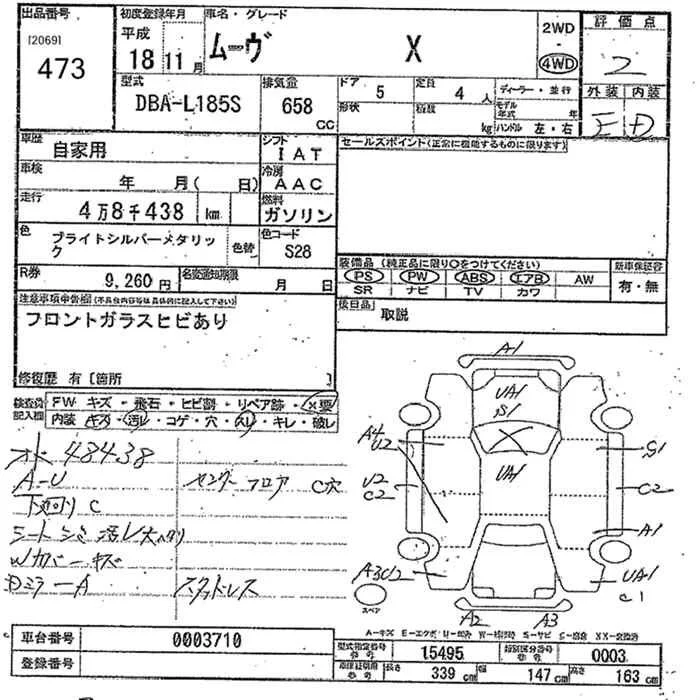 出品番号 初度登録年月 車名・グレード 評価点
[2069] 473 平成 18 11月 ムーヴ X 2WD 4WD 2
型式 DBA-L185S 排気量 658 CC ドア 5 定員 4 人 ディーラー・並行 外装 内装
形状 程度 kg モデル年式 年 ハンドル 左・右 E D
車歴 自家用 シフト IAT セールスポイント(正常に機能するものに限ります)
車検 年 月( 日) 冷房 AAC
走行 4万8千438 km 燃料 ガソリン
色 ブライトシルバーメタリック 色替 色コード S28
装備品(純正品に限り○をつけてください) 新車保証書
R券 9,260円 名変通知期限 月 日 PS PW ABS エアB AW 有・無
SR ナビ TV カワ
注意事項申告欄(不具合内容等は具体的に記入して下さい) 後日品 取説
フロントガラスヒビあり
修復歴 有 [箇所
検査員記入欄 FW キズ・飛石・ヒビ割・リペア跡・X要
内装 キズ・汚レ・コゲ・穴・久レ・キレ・破レ
48438
A-U センターフロア C穴
下回り C
シート シミ 汚レ大
Wカバーキズ
Dミラー A スタッドレス
A1
UA1
S1
A4
U2
UA1
S1
U2
C2
C2
A1
A3U2
UA1
C1
スペア
A2 A3
車台番号 0003710
型式指定番号 15495 類別区分番号 0003
登録番号
長さ 339 cm 幅 147 cm 高さ 163 cm